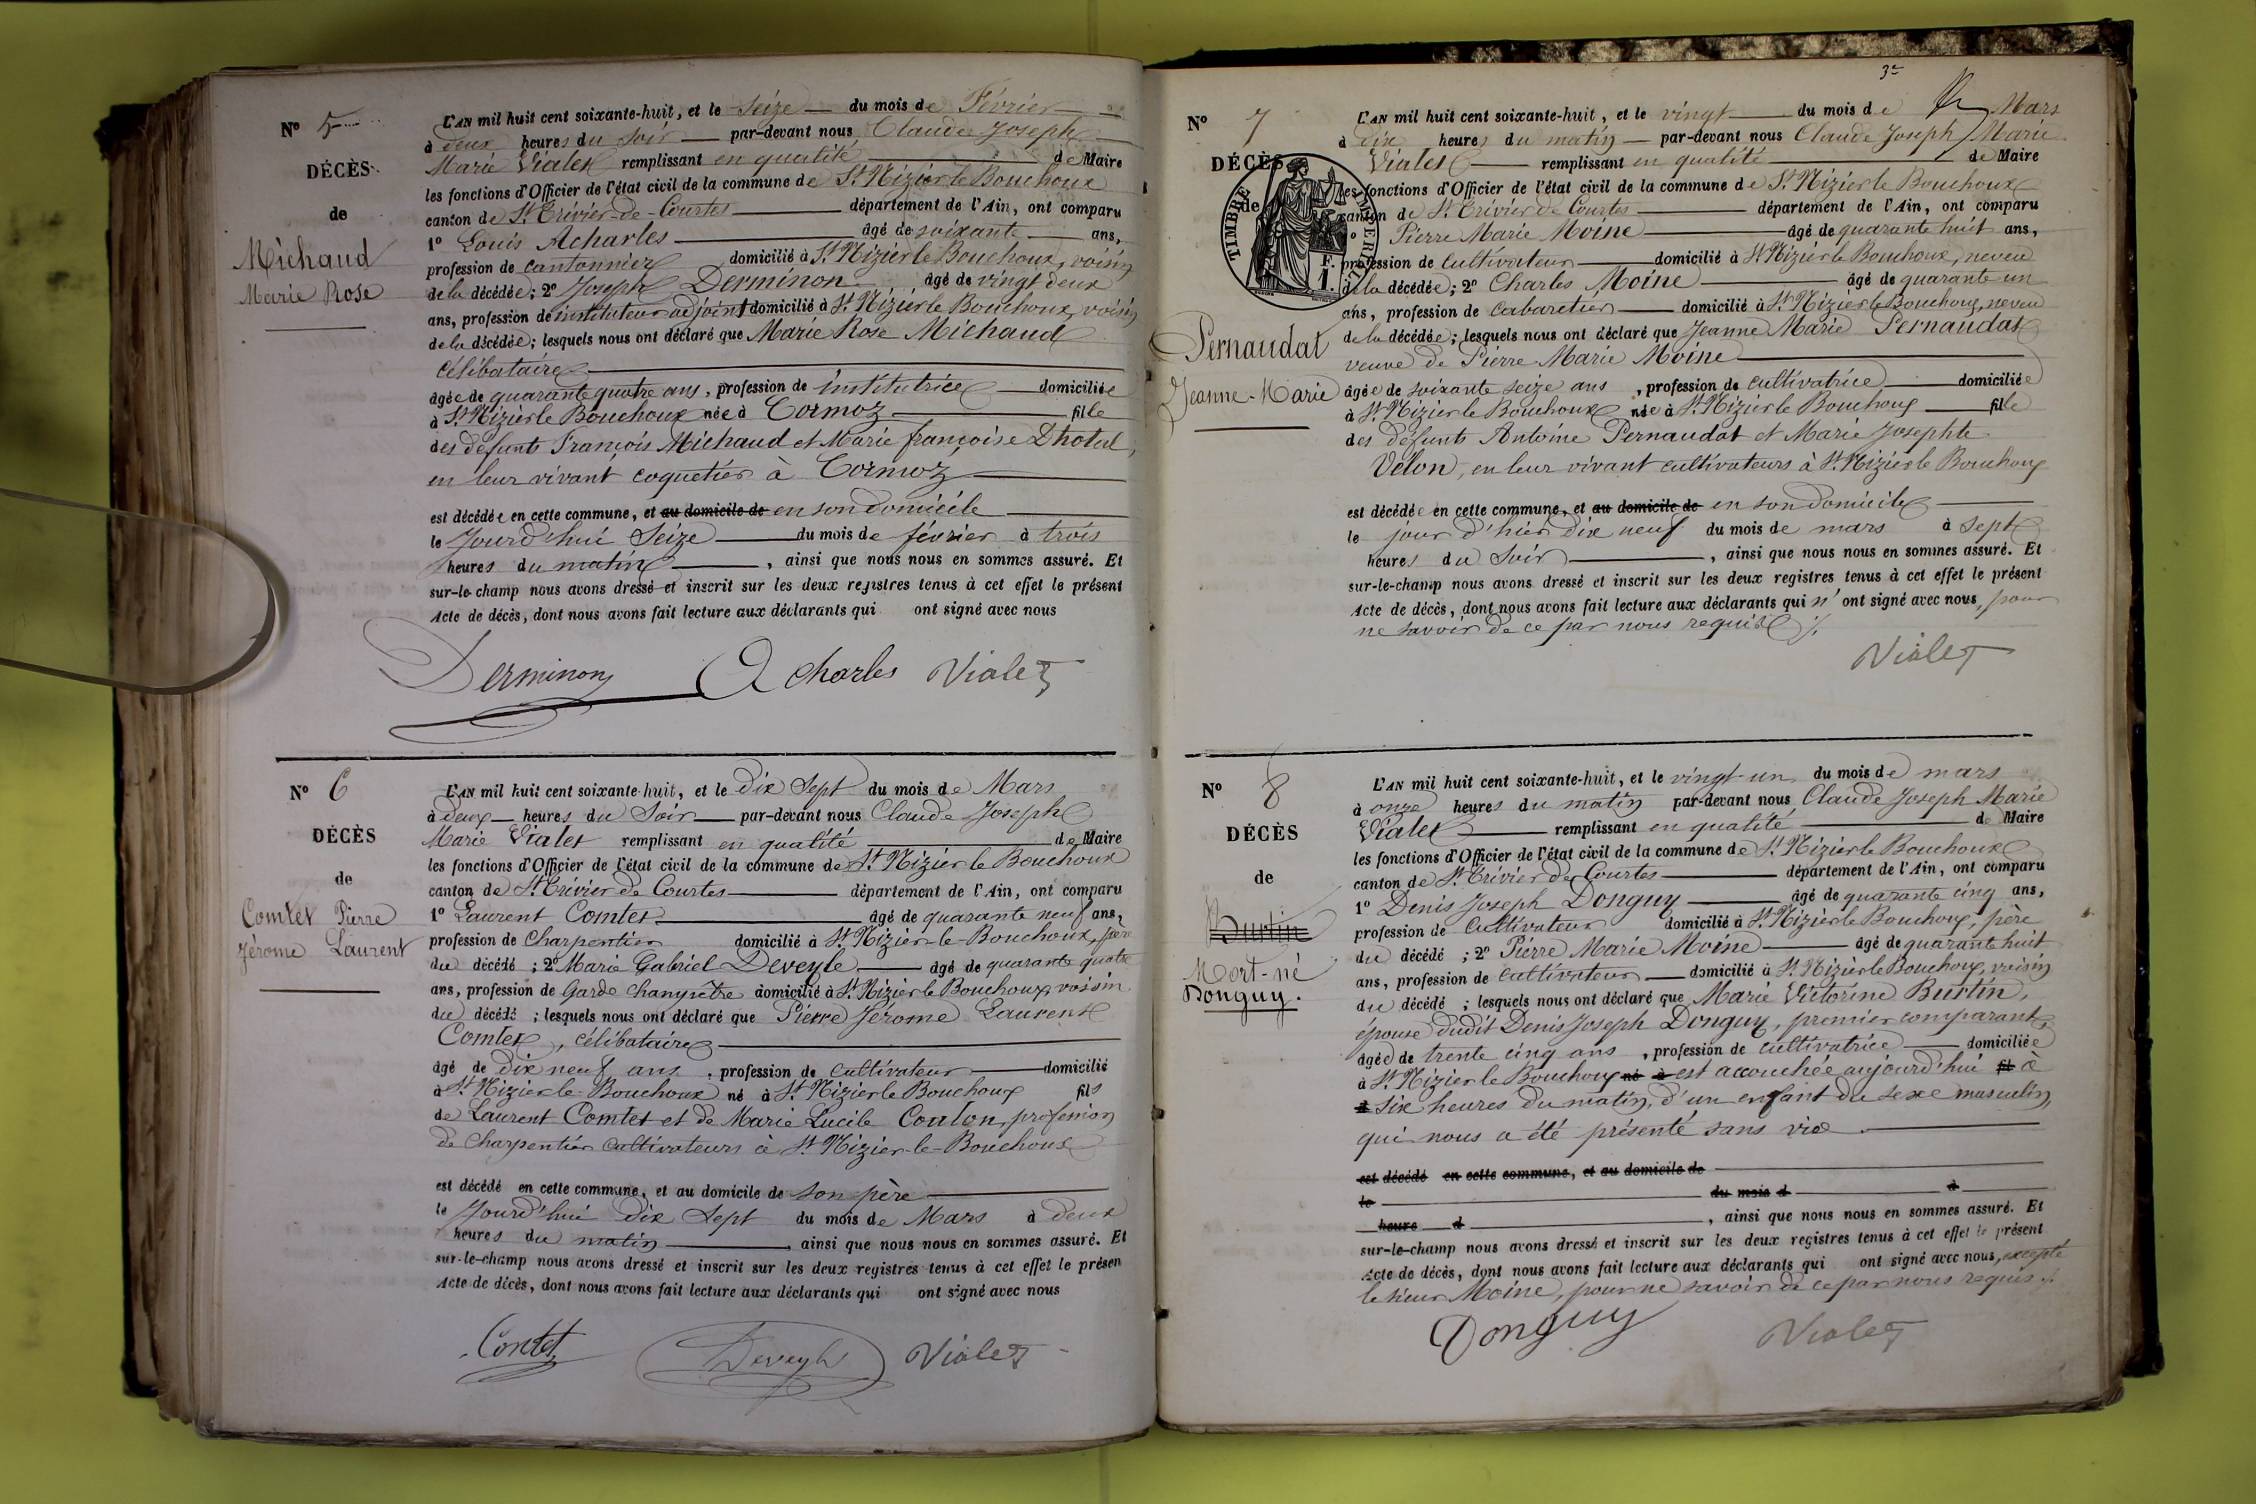 N° 5
DÉCÈS
de
Michaud
Marie Rose
L'AN mil huit cent soixante-huit, et le Seize du mois de Février
à deux heures du soir par-devant nous Claude Joseph
Marie Vialet remplissant en qualité de Maire
les fonctions d'Officier de l'état civil de la commune de St Nizier le Bouchoux
canton de St Trivier-de-Courtes département de l'Ain, ont comparu
1° Louis Acharles âgé de soixante ans,
profession de cantonnier domicilié à St Nizier le Bouchoux, voisin
de la décédée; 2° Joseph Derminon âgé de vingt deux
ans, profession de instituteur adjoint domicilié à St Nizier le Bouchoux, voisin
de la décédée; lesquels nous ont déclaré que Marie Rose Michaud
célibataire
âgée de quarante quatre ans, profession de institutrice domiciliée
à St Nizier le Bouchoux née à Cormoz fille
des défunts François Michaud et Marie françoise Dhotal,
en leur vivant coquetier à Cormoz
est décédée en cette commune, et au domicile de en son domicile
le Jourd'hui Seize du mois de février à trois
heures du matin, ainsi que nous nous en sommes assuré. Et
sur-le-champ nous avons dressé et inscrit sur les deux registres tenus à cet effet le présent
Acte de décès, dont nous avons fait lecture aux déclarants qui ont signé avec nous
Derminon Acharles Vialet
N° 6
DÉCÈS
de
Comtet Pierre
Jérome Laurent
L'AN mil huit cent soixante-huit, et le Dix Sept du mois de Mars
à deux heures du Soir par-devant nous Claude Joseph
Marie Vialet remplissant en qualité de Maire
les fonctions d'Officier de l'état civil de la commune de St Nizier le Bouchoux
canton de St Trivier de Courtes département de l'Ain, ont comparu
1° Laurent Comtet âgé de quarante neuf ans,
profession de Charpentier domicilié à St Nizier-le-Bouchoux, père
du décédé; 2° Marie Gabriel Deveyle âgé de quarante quatre
ans, profession de Garde champêtre domicilié à St Nizier le Bouchoux, voisin
du décédé; lesquels nous ont déclaré que Pierre Jérome Laurent
Comtet, célibataire
âgé de dix neuf ans, profession de cultivateur domicilié
à St Nizier-le-Bouchoux né à St Nizier le Bouchoux fils
de Laurent Comtet et de Marie Lucile Coulon, profession
de Charpentier cultivateurs à St Nizier-le-Bouchoux
est décédé en cette commune, et au domicile de son père
le Jourd'hui Dix Sept du mois de Mars à deux
heures du matin, ainsi que nous nous en sommes assuré. Et
sur-le-champ nous avons dressé et inscrit sur les deux registres tenus à cet effet le présen
Acte de décès, dont nous avons fait lecture aux déclarants qui ont signé avec nous
Comtet Deveyle Vialet
3e
N° 7
DÉCÈS
de
TIMBRE IMPÉRIAL
1 F.
Pernaudat
Jeanne-Marie
L'AN mil huit cent soixante-huit, et le vingt du mois de Mars
à dix heures du matin par-devant nous Claude Joseph Marie
Vialet remplissant en qualité de Maire
les fonctions d'Officier de l'état civil de la commune de St Nizier le Bouchoux
canton de St Trivier de Courtes département de l'Ain, ont comparu
1° Pierre Marie Moine âgé de quarante huit ans,
profession de cultivateur domicilié à St Nizier le Bouchoux, neveu
de la décédée; 2° Charles Moine âgé de quarante un
ans, profession de cabaretier domicilié à St Nizier le Bouchoux, neveu
de la décédée; lesquels nous ont déclaré que Jeanne Marie Pernaudat
veuve de Pierre Marie Moine
âgée de soixante seize ans, profession de cultivatrice domiciliée
à St Nizier le Bouchoux née à St Nizier le Bouchoux fille
des défunts Antoine Pernaudat et Marie Josephte
Velon, en leur vivant cultivateurs à St Nizier le Bouchoux
est décédée en cette commune, et au domicile de en son domicile
le jour d'hier dix neuf du mois de mars à sept
heures du soir, ainsi que nous nous en sommes assuré. Et
sur-le-champ nous avons dressé et inscrit sur les deux registres tenus à cet effet le présent
Acte de décès, dont nous avons fait lecture aux déclarants qui n'ont signé avec nous, pour
ne savoir de ce par nous requis ./.
Vialet
N° 8
DÉCÈS
de
Burtin
Mort-né
Donguy.
L'AN mil huit cent soixante-huit, et le vingt-un du mois de mars
à onze heures du matin par-devant nous Claude Joseph Marie
Vialet remplissant en qualité de Maire
les fonctions d'Officier de l'état civil de la commune de St Nizier le Bouchoux
canton de St Trivier de Courtes département de l'Ain, ont comparu
1° Denis Joseph Donguy âgé de quarante cinq ans,
profession de Cultivateur domicilié à St Nizier le Bouchoux, père
du décédé; 2° Pierre Marie Moine âgé de quarante huit
ans, profession de cultivateur domicilié à St Nizier le Bouchoux, voisin
du décédé; lesquels nous ont déclaré que Marie Victorine Burtin,
épouse dudit Denis Joseph Donguy, premier comparant,
âgée de trente cinq ans, profession de cultivatrice domiciliée
à St Nizier le Bouchoux né à est accouchée aujourd'hui fil à
à six heures du matin, d'un enfant du sexe masculin,
qui nous a été présenté sans vie
est décédé en cette commune, et au domicile de
le du mois d à
heure d, ainsi que nous nous en sommes assuré. Et
sur-le-champ nous avons dressé et inscrit sur les deux registres tenus à cet effet le présent
Acte de décès, dont nous avons fait lecture aux déclarants qui ont signé avec nous, excepté
le sieur Moine, pour ne savoir de ce par nous requis ./.
Donguy Vialet